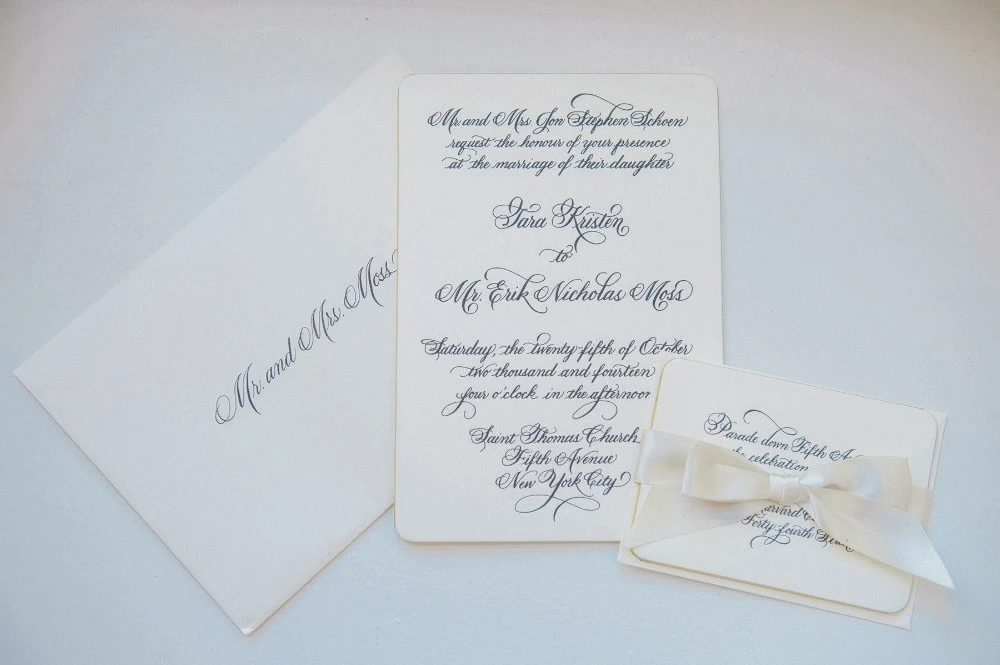 Mr. and Mrs. Moss
Mr and Mrs Jon Stephen Schoen
request the honour of your presence
at the marriage of their daughter
Tara Kristen
to
Mr. Erik Nicholas Moss
Saturday, the twenty-fifth of October
two thousand and fourteen
four o'clock in the afternoon
Saint Thomas Church
Fifth Avenue
New York City
Parade down Fifth
celebration
Forty-fourth